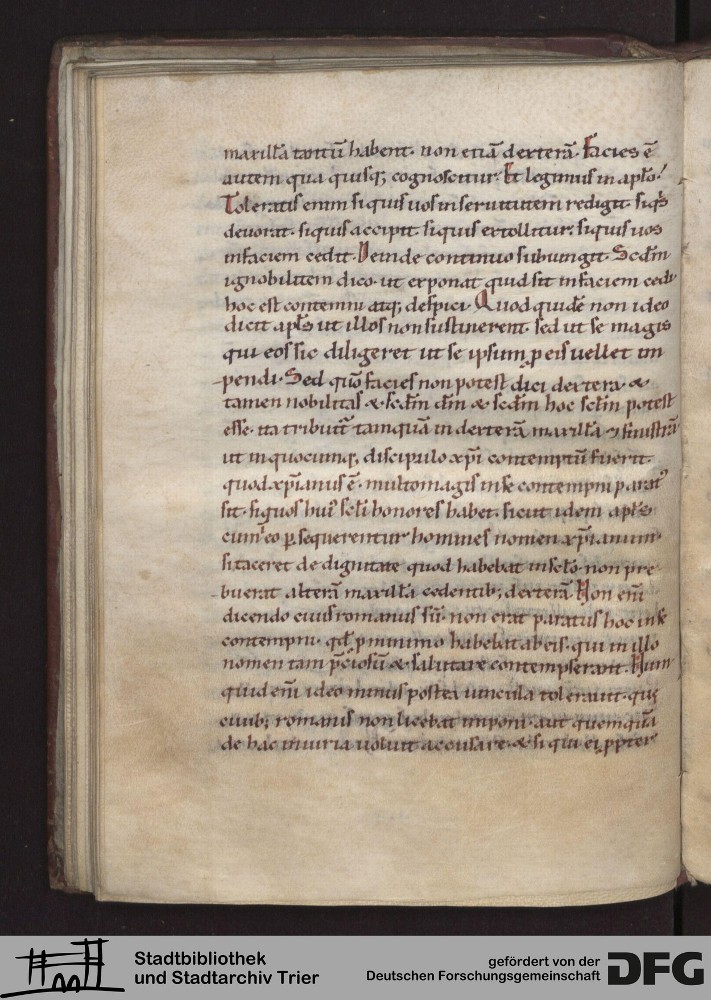 maxillā tantū habent. non etiā dexterā. Facies ē
autem qua quisq; cognoscitur. Et legimus in apło.
Toleratis enim siquis uos in seruitutem redigit. siqs
deuorat. siquis accipit. siquis extollitur. siquis uos
in faciem cedit. Deinde continuo subiungit. Scdm
ignobilitem dico. ut exponat quid sit in faciem cedi
hoc est contemni atq; despici. Quod quidē non ideo
dicit apłs ut illos non sustinerent. sed ut se magis
qui eos sic diligeret ut se ipsum p eis uellet im
pendi. Sed quō facies non potest dici dextera &
tamen nobilitas & scdm dm & scdm hoc sctm potest
esse. ita tribuit tamquā in dexterā maxillā & sinistrā
ut in quocumq; discipulo xpi contemptū fuerit.
quod xpianus ē. multo magis in se contempni parat᾽
sit. siquos hui᾽ scti honores habet. sicut idem apłs
cum eo psequerentur homines nomen xpianum
si taceret de dignitate quod habebat in scło. non pre
buerat alterā maxillā cedentib; dexterā. Non eni
dicendo ciuis romanus sū. non erat paratus hoc in se
contempni. qd p minimo habebat ab eis. qui in illo
nomen tam pciosū & salutare contempserant. Num
quid eni ideo minus postea uincula tolerauit. quę
ciuib; romanis non licebat imponi. aut quemquā
de hac iniuria uoluit accusare. & si qui ei ppter
Stadtbibliothek
und Stadtarchiv Trier
gefördert von der
Deutschen Forschungsgemeinschaft
DFG